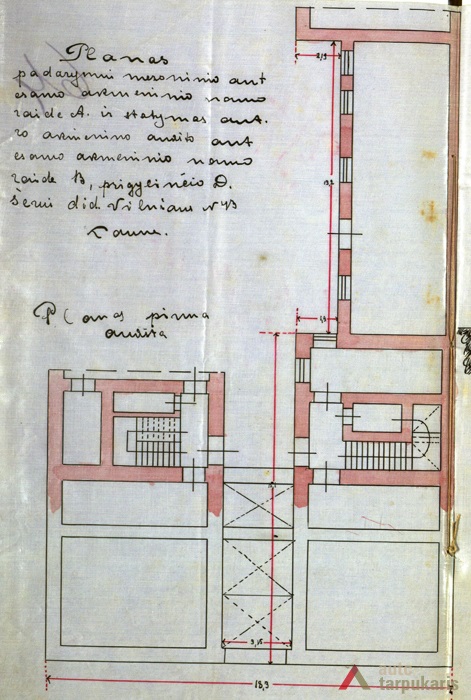 Planas
padarymui mezoninio ant
esamo akmeninio namo
raide A. ir statymas ant.
ro akmenino aukšto ant
esamo akmeninio namo
raide B, prigulinčio D.
Did Vilniaus N 43
Kaune.
Planas pirma
aukšta
2,9
19,2
3,15
18,3
autc
tarpukaris